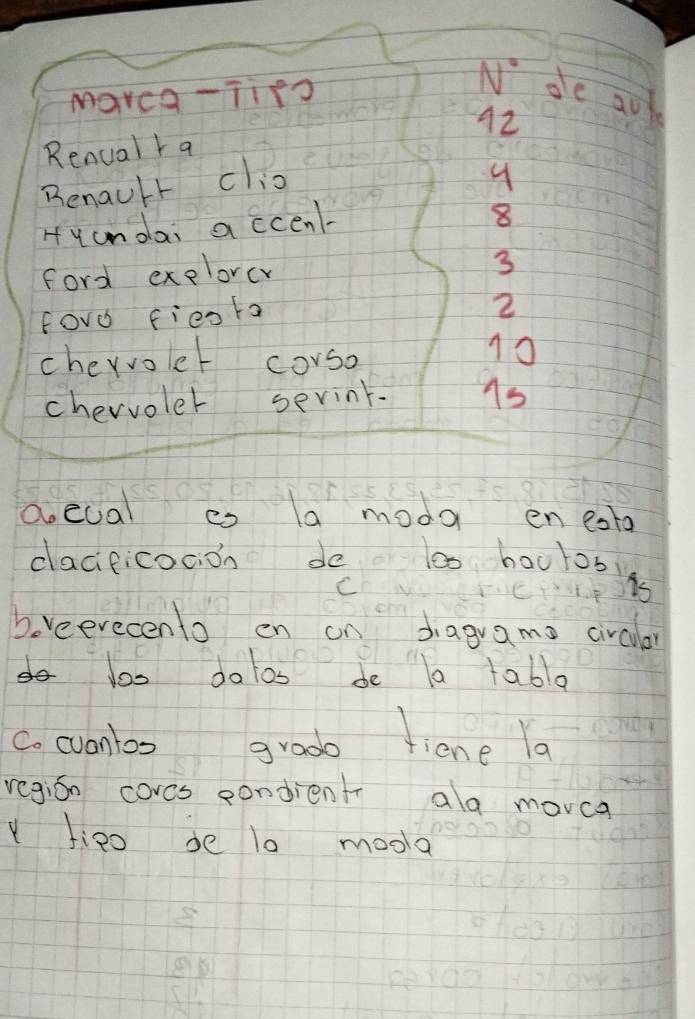 marca - Tipo N° de auto
Renualt 9 12
Renault clio 4
Hyundai accent 8
ford explorer 3
ford fiesta 2
chervolet corso 10
chervolet serint. 15
a. cual es la moda en esta
clacificación de los hautos
15
b. reprecento en un diagrama circular
do los datos de la tabla
c. cuantos grado tiene la
región corcs pondient ala marca
y tipo de la moda